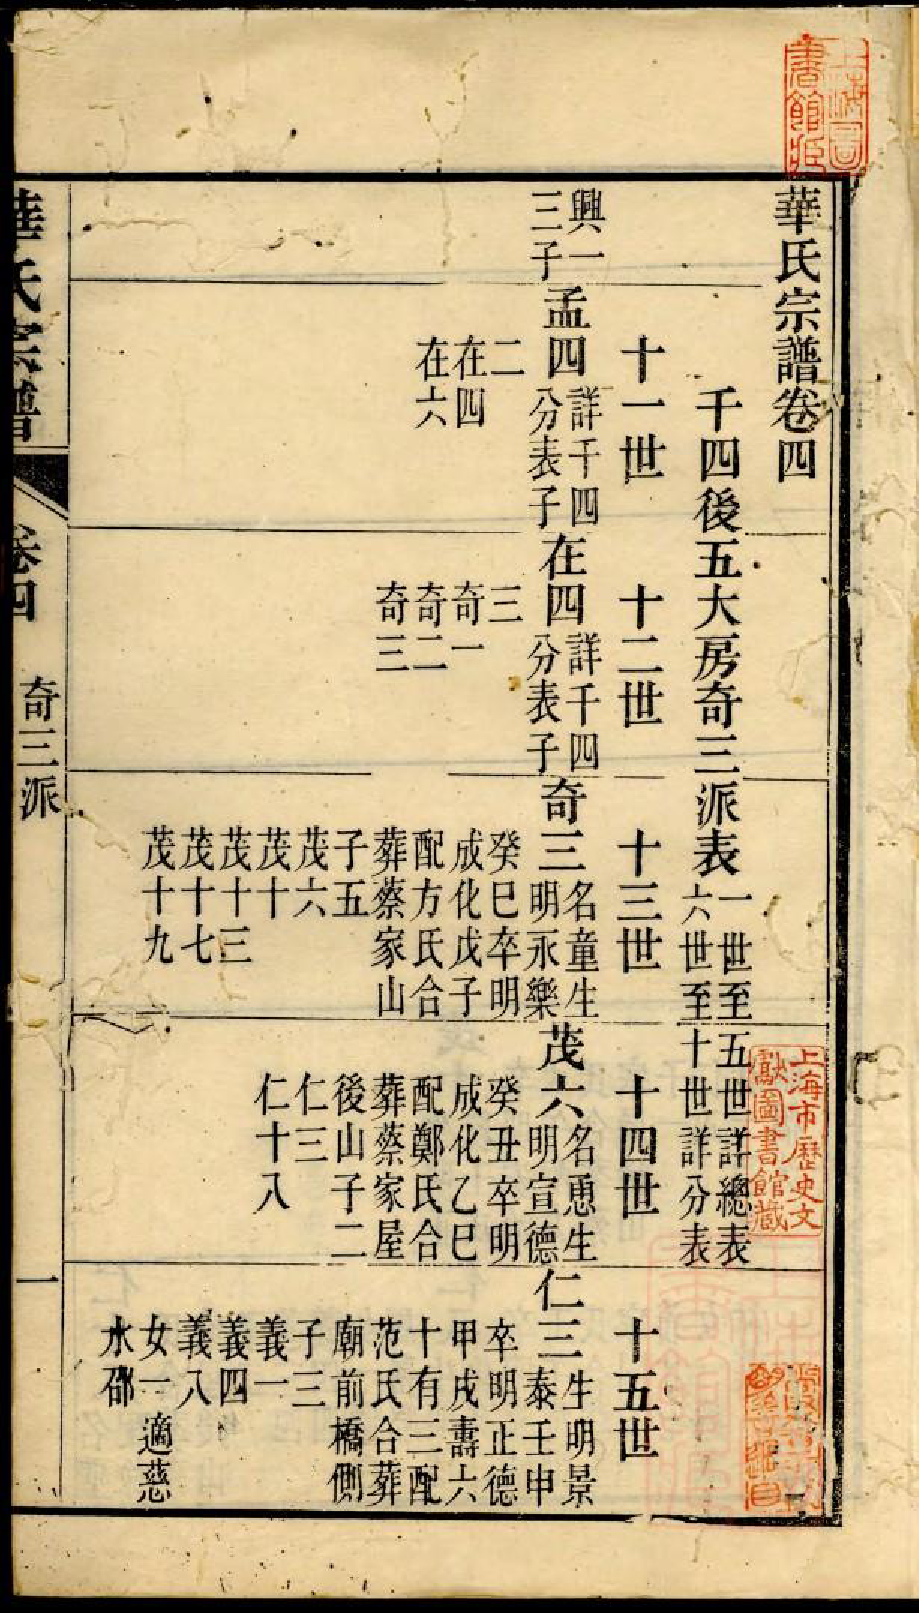 華氏宗譜卷四
千四後五大房奇三派表 一世至五世詳總表
六世至十世詳分表
十一世
十二世
十三世
十四世
十五世
興一
三子
孟四 詳千四
分表子
二
在四
在六
在四 詳千四
分表子
三
奇一
奇二
奇三
奇三 名童生
明永樂
癸巳卒明
成化戊子
配方氏合
葬蔡家山
子五
茂六
茂十
茂十三
茂十七
茂十九
茂六 名恿生
明宣德
癸丑卒明
成化乙巳
配鄭氏合
葬蔡家屋
後山子二
仁三
仁十八
仁三 生明景
泰壬申
卒明正德
甲戌壽六
十有三配
范氏合葬
廟前橋側
子三
義一
義四
義八
女一適慈
水邵
華氏宗譜
卷四
奇三派
一
上海市歷史文
獻圖書館藏